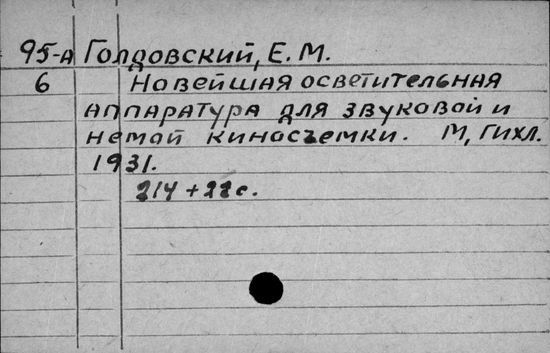 95-А Голдовский, Е. М.
6 Новейшая осветительная
аппаратура для звуковой и
немой киносъемки. М, Гихл.
1931.
214 + 22 с.